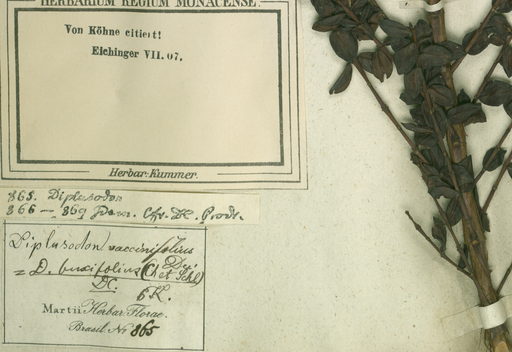 HERBARIUM REGIUM MONACENSE.
Von Köhne citiert!
Eichinger VII. 07.
Herbar. Kummer.
865. Diplusodon
866 — 869 Dem. Chr. DC. Prodr.
Diplusodon vaccinifolius
= D. buxifolius (Ch et Schl)
DC.
Martii Herbar. Florae
Brasil. No 865